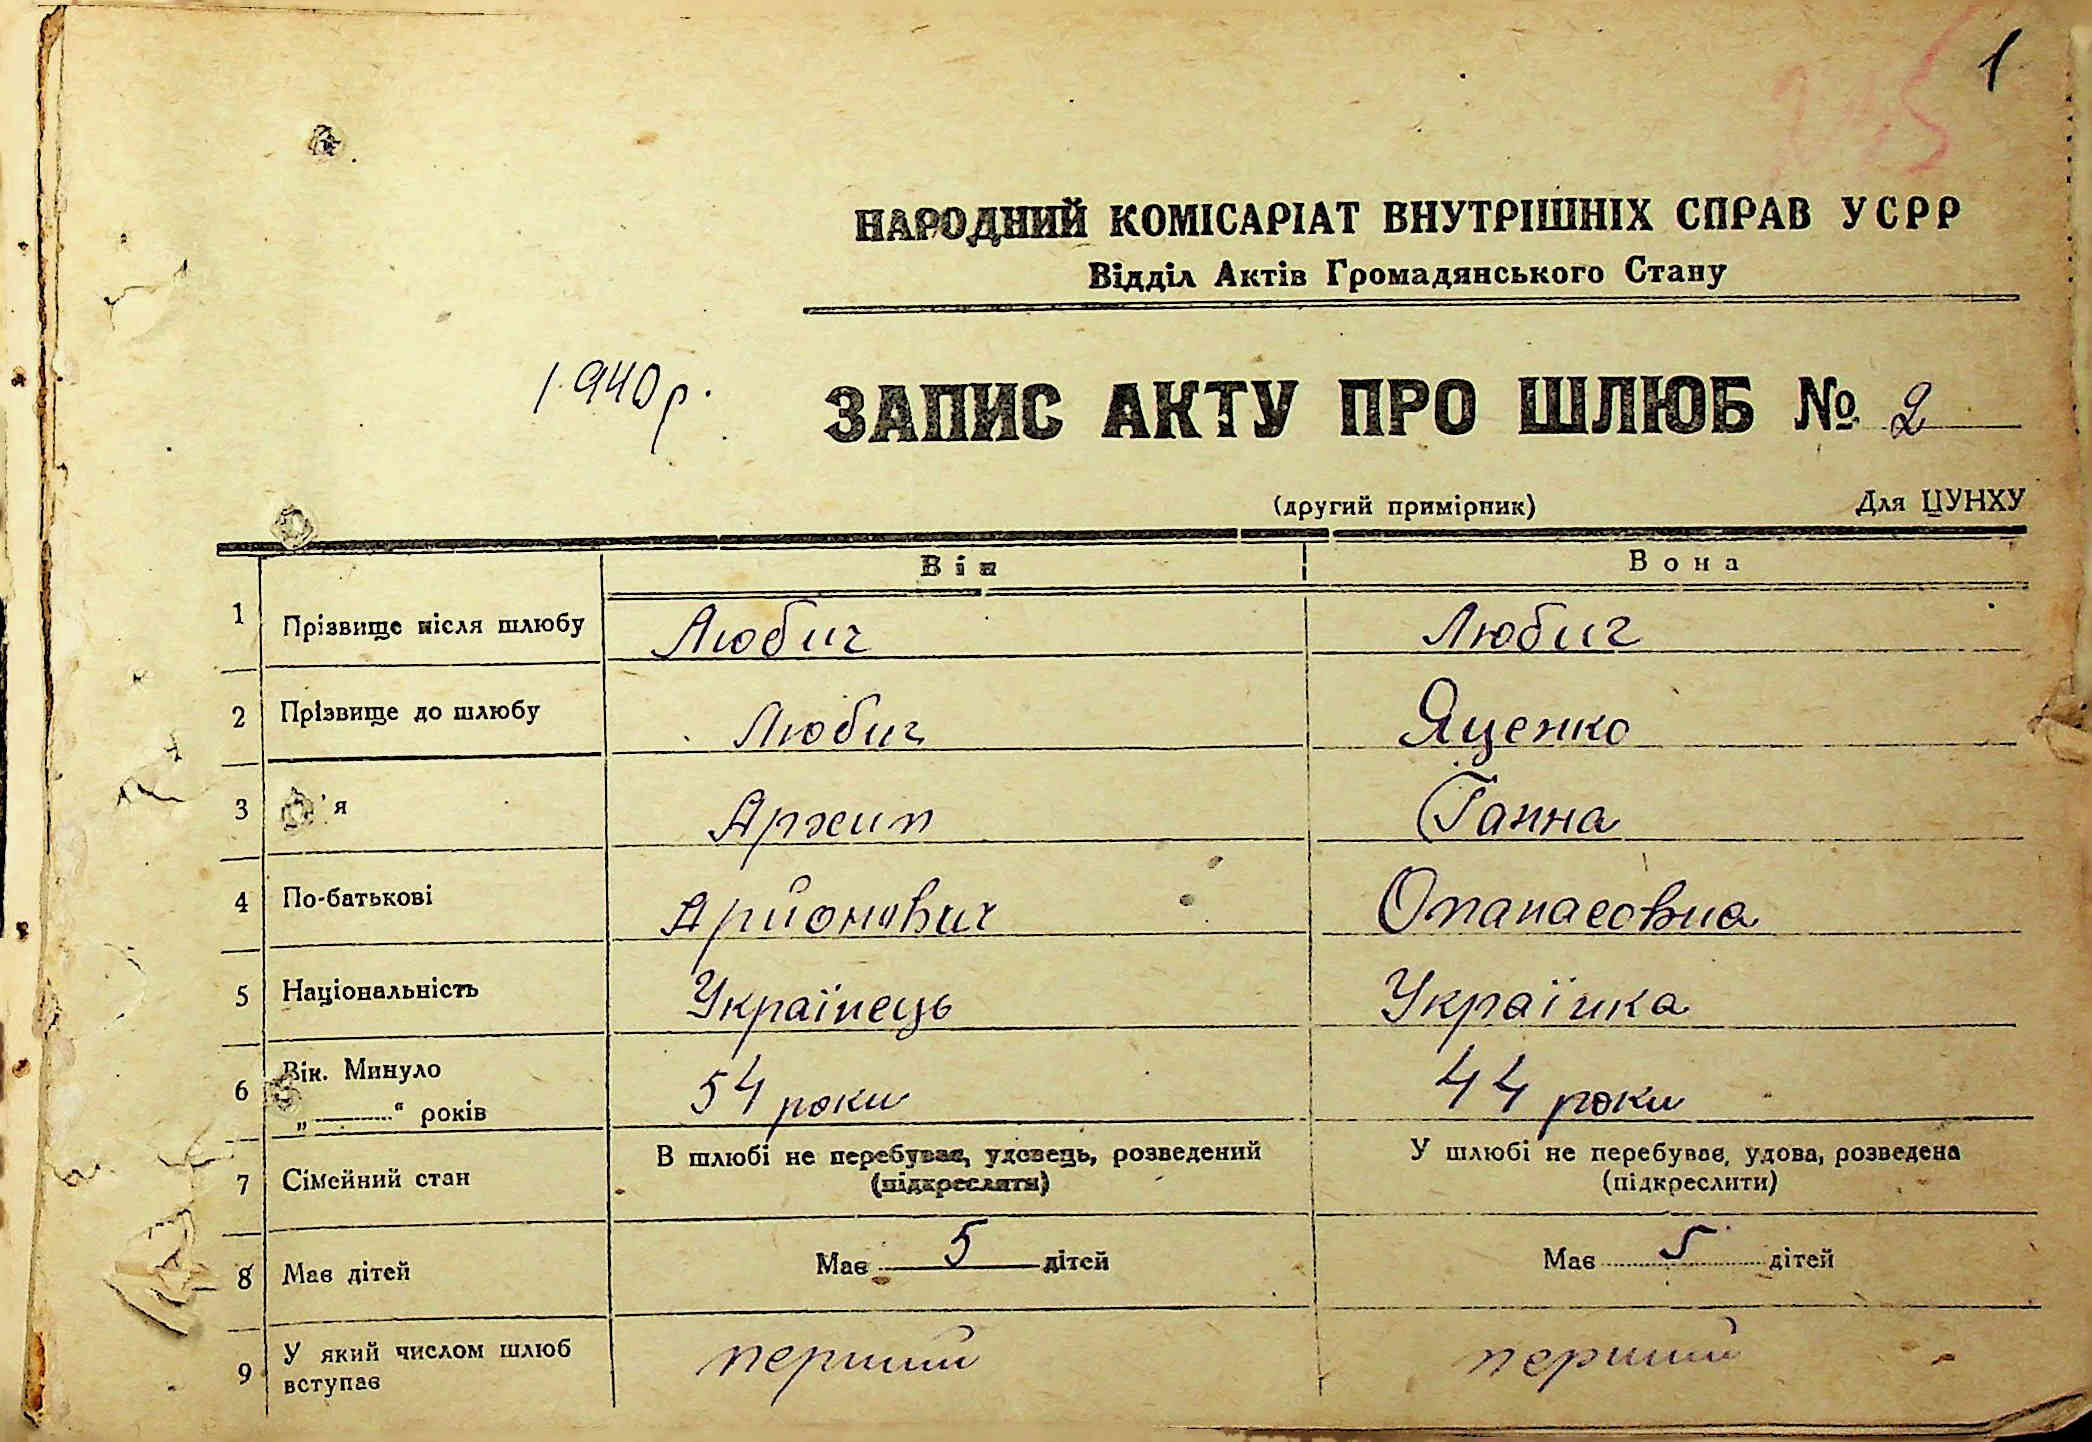 1
НАРОДНИЙ КОМІСАРІАТ ВНУТРІШНІХ СПРАВ УСРР
Відділ Актів Громадянського Стану
1940 р.
ЗАПИС АКТУ ПРО ШЛЮБ № 2
(другий примірник) Для ЦУНХУ
Він Вона
1 Прізвище після шлюбу Любич Любич
2 Прізвище до шлюбу Любич Яценко
3 'я Архип Ганна
4 По-батькові Опанасовна
5 Національність Українець Українка
6 Вік. Минуло
„ “ років 54 роки 44 роки
7 Сімейний стан В шлюбі не перебуває, удовець, розведений (підкреслити) У шлюбі не перебуває, удова, розведена (підкреслити)
8 Має дітей Має 5 дітей Має 5 дітей
9 У який числом шлюб
вступає перший перший